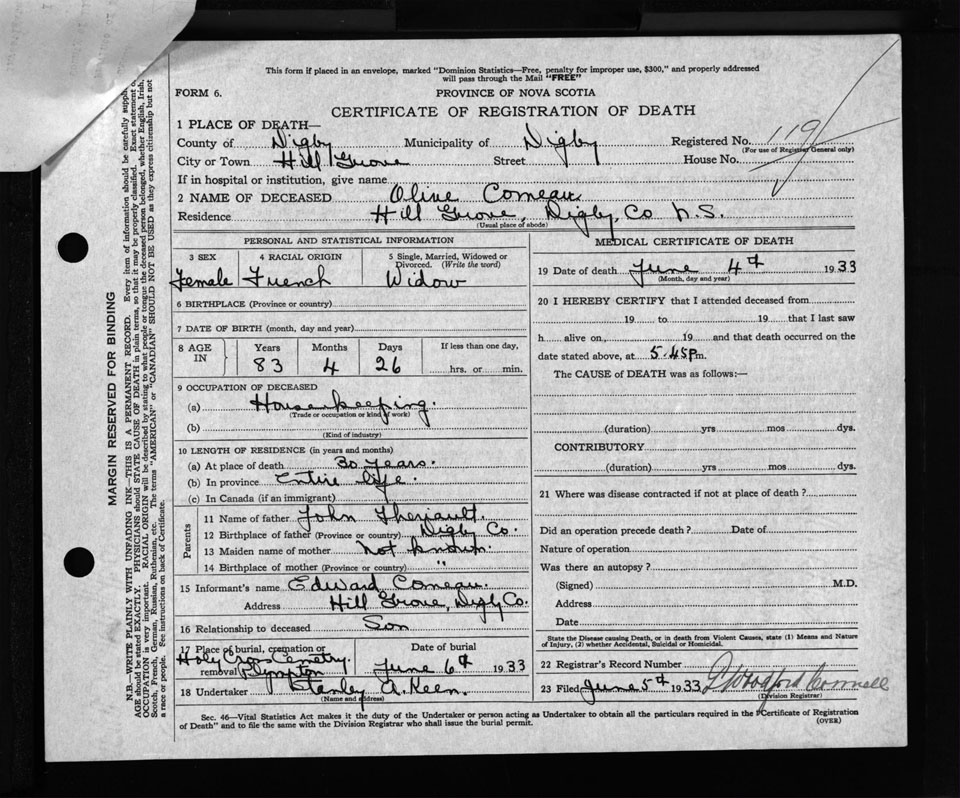 This form if placed in an envelope, marked "Dominion Statistics—Free, penalty for improper use, $300," and properly addressed
will pass through the Mail "FREE"
FORM 6.
PROVINCE OF NOVA SCOTIA
CERTIFICATE OF REGISTRATION OF DEATH
1 PLACE OF DEATH—
County of Digby Municipality of Digby Registered No. 119
(For use of Registrar General only)
City or Town Hill Grove Street House No.
If in hospital or institution, give name
2 NAME OF DECEASED Olive Comeau.
Residence Hill Grove, Digby, Co N.S.
(Usual place of abode)
PERSONAL AND STATISTICAL INFORMATION
3 SEX 4 RACIAL ORIGIN 5 Single, Married, Widowed or
Divorced. (Write the word)
Female French Widow
6 BIRTHPLACE (Province or country)
7 DATE OF BIRTH (month, day and year)
8 AGE IN Years Months Days If less than one day,
83 4 26 hrs. or min.
9 OCCUPATION OF DECEASED
(a) Housekeeping.
(Trade or occupation or kind of work)
(b)
(Kind of industry)
10 LENGTH OF RESIDENCE (in years and months)
(a) At place of death 30 years.
(b) In province Entire life.
(c) In Canada (if an immigrant)
Parents
11 Name of father John Theriault.
12 Birthplace of father (Province or country) Digby Co.
13 Maiden name of mother not known.
14 Birthplace of mother (Province or country) "
15 Informant's name Edward Comeau.
Address Hill Grove, Digby Co.
16 Relationship to deceased Son
17 Place of burial, cremation or Date of burial
Holy Cross Cemetery.
removal Plympton June 6th 1933
18 Undertaker Stanley A. Keen.
(Name and address)
MEDICAL CERTIFICATE OF DEATH
19 Date of death June 4th 1933
(Month, day and year)
20 I HEREBY CERTIFY that I attended deceased from
19 to 19 that I last saw
h alive on 19 and that death occurred on the
date stated above, at 5.45 P m.
The CAUSE of DEATH was as follows:—
(duration) yrs mos dys.
CONTRIBUTORY
(duration) yrs mos dys.
21 Where was disease contracted if not at place of death?
Did an operation precede death? Date of
Nature of operation
Was there an autopsy?
(Signed) M.D.
Address
Date
State the Disease causing Death, or in death from Violent Causes, state (1) Means and Nature
of Injury, (2) whether Accidental, Suicidal or Homicidal.
22 Registrar's Record Number
23 Filed June 5th 1933
(Division Registrar)
Sec. 46—Vital Statistics Act makes it the duty of the Undertaker or person acting as Undertaker to obtain all the particulars required in the "Certificate of Registration
of Death" and to file the same with the Division Registrar who shall issue the burial permit.
(OVER)
MARGIN RESERVED FOR BINDING
N.B.—WRITE PLAINLY WITH UNFADING INK—THIS IS A PERMANENT RECORD. Every item of information should be carefully
AGE should be stated EXACTLY. PHYSICIANS should STATE CAUSE OF DEATH in plain terms, so that it may be properly classified. Exact statement
OCCUPATION is very important. RACIAL ORIGIN will be described by stating to what people or tongue the deceased person belonged, whether English, Irish,
Scotch, French, German, Russian, Ruthenian, etc. The terms "AMERICAN" or "CANADIAN" SHOULD NOT BE USED as they express citizenship but not
a race or people. See instructions on back of Certificate.